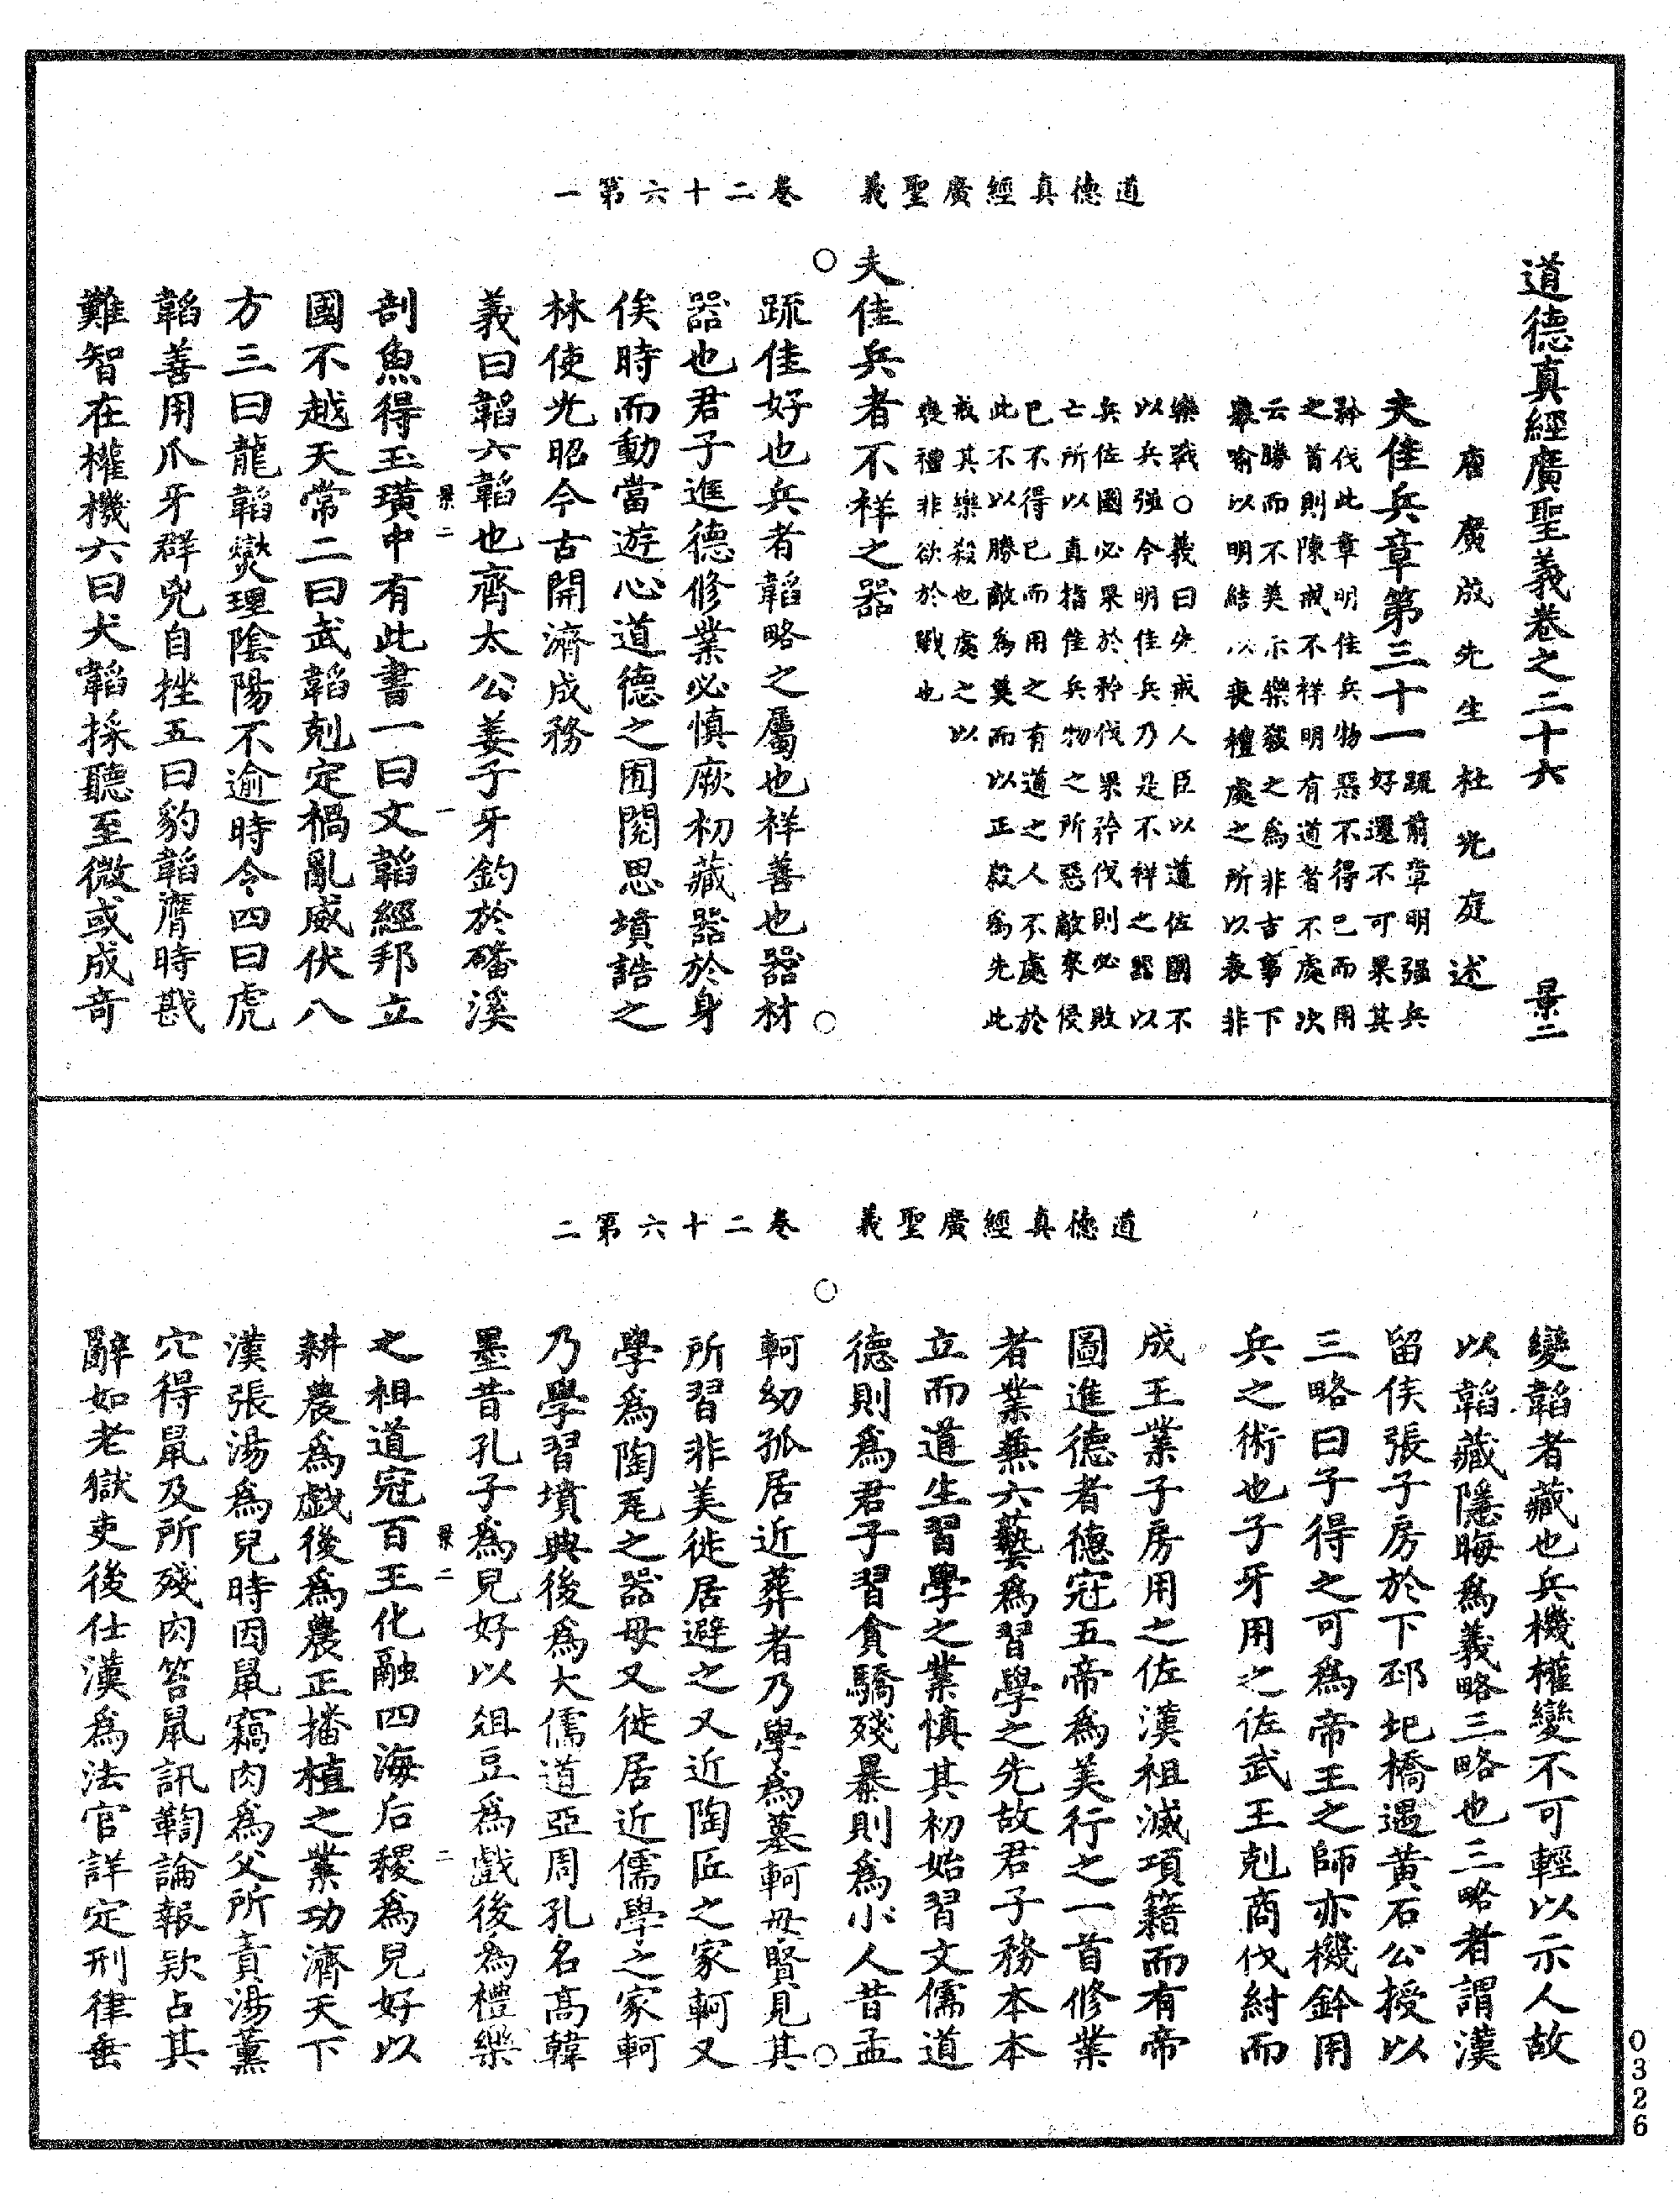 道德真經廣聖義　卷二十六第一
道德真經廣聖義卷之二十六　景二
唐廣成先生杜光庭述
夫佳兵章第三十一
疏前章明强兵
好還不可果其
矜伐此章明佳兵物惡不得已而用
之首則陳戒不祥明有道者不處次
云勝而不美示樂殺之爲非吉事下
舉喻以明結以喪禮處之所以表非
樂戰○義曰先戒人臣以道佐國不
以兵强今明佳兵乃是不祥之器以
兵佐國必果於矜伐果矜伐則必敗
亡所以直指佳兵物之所惡敵來侵
已不得已而用之有道之人不處於
此不以勝敵爲美而以正殺爲先此
戒其樂殺也處之以
喪禮非欲於戰也
夫佳兵者不祥之器
疏佳好也兵者韜略之屬也祥善也器材
器也君子進德修業必慎厥初藏器於身
俟時而動當遊心道德之囿閱思墳誥之
林使光昭今古開濟成務
義曰韜六韜也齊太公姜子牙釣於磻溪
景二　一
剖魚得玉璜中有此書一曰文韜經邦立
國不越天常二曰武韜剋定禍亂威伏八
方三曰龍韜爕理陰陽不逾時令四曰虎
韜善用爪牙群兇自挫五曰豹韜膺時戡
難智在權機六曰犬韜採聽至微或成奇
道德真經廣聖義　卷二十六第二
變韜者藏也兵機權變不可輕以示人故
以韜藏隱晦爲義略三略也三略者謂漢
留侯張子房於下邳圯橋遇黃石公授以
三略曰子得之可爲帝王之師亦機鈐用
兵之術也子牙用之佐武王剋商伐紂而
成王業子房用之佐漢祖滅項籍而有帝
圖進德者德冠五帝爲美行之一首修業
者業兼六藝爲習學之先故君子務本本
立而道生習學之業慎其初始習文儒道
德則爲君子習貪驕殘暴則爲小人昔孟
軻幼孤居近葬者乃學爲墓軻母賢見其
所習非美徙居避之又近陶匠之家軻又
學爲陶瓦之器母又徙居近儒學之家軻
乃學習墳典後爲大儒道亞周孔名高韓
墨昔孔子爲兒好以俎豆爲戲後爲禮樂
景二　二
之祖道冠百王化融四海后稷爲兒好以
耕農爲戲後爲農正播植之業功濟天下
漢張湯爲兒時因鼠竊肉爲父所責湯薰
穴得鼠及所殘肉笞鼠訊鞫論報欵占其
辭如老獄吏後仕漢爲法官詳定刑律垂
0326